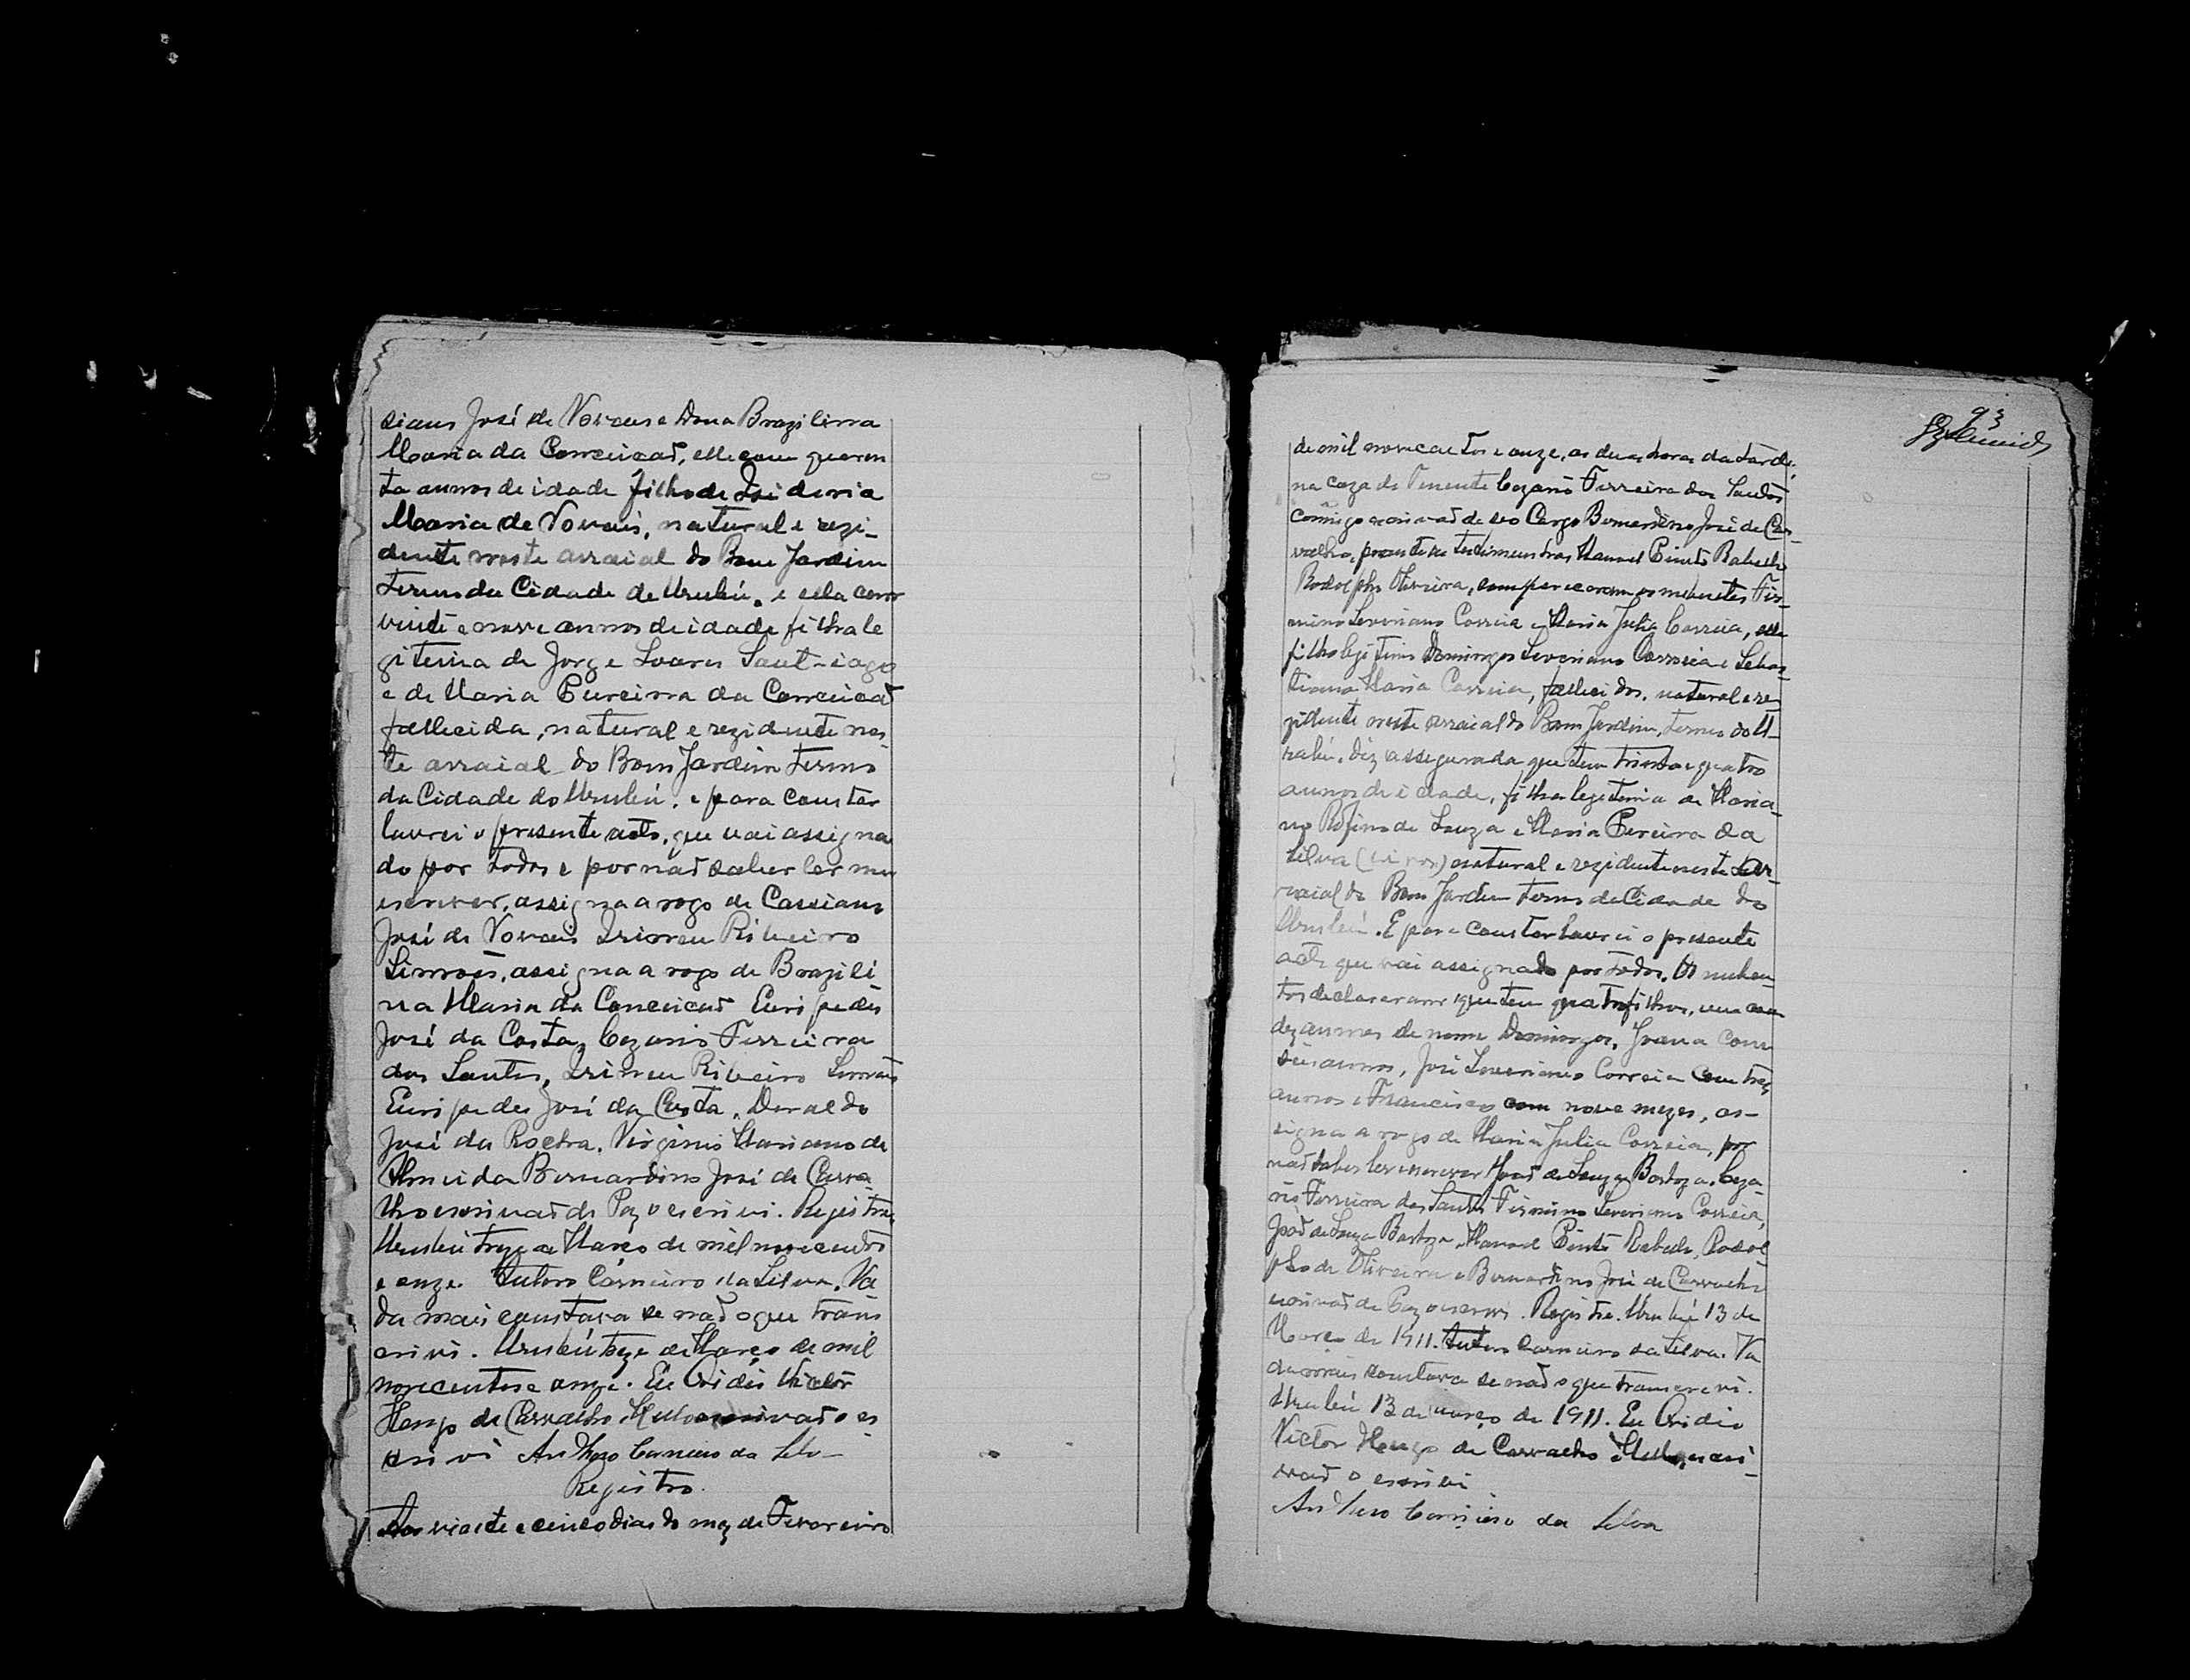 siano José de Novaes e Dona Brazilina
Maria da Conceicaõ, elle com quaren
ta annos de idade filho de Izideria
Maria de Novais, natural e rezi-
dente neste arraial do Bom Jardim
Termo da Cidade de Urubú. e ella com
vinte e nove annos de idade filha le
gitima de Jorge Soares Sant-iago
e de Maria Pureira da Conceicaõ
fallecida, natural e rezidente nes
te arraial do Bom Jardim Termo
da Cidade do Urubú. e para constar
lavrei o presente acto, que vai assigna
do por todos e por naõ saber ler nem
escrever, assigna a rogo de Cassiano
José de Novais Irineu Ribeiro
Simoẽs, assigna a rogo de Brazili
na Maria da Conceicaõ Euripedes
José da Costa, Cezario Ferreira
dos Santos, Irineu Ribeiro Simoẽs
Euripedes José da Costa, Deraldo
José da Rocha. Virginio Mariano de
Almeida Bernardino José de Carva
lho escrivaõ de Paz o escrivi. Registre
Urubú treze de Março de mil novecentos
e onze. Autero Carneiro da Silva. Na
da mais constava se naõ o que trans
crivi. Urubú treze de Março de mil
novecentos e onze. Eu Ovidio Victor
Hengo de Carvalho Mello escrivaõ o es
crivi Anthero Carneiro da Silva
Registro.
Aos vinte e cinco dias do mez de Fevereiro
93
de mil novecentos e onze, as duas horas da tarde,
na caza do Tenente Cezario Ferreira dos Santos
comigo escrivaõ de seo Cargo Bernardino José de Car-
valho, prezente as testimunhas Manoel Pinto Rabello
Rodolpho Oliveira, compareceram os nubentes Fir-
mino Severiano Correia e Maria Julia Correia, elle
filho legitimo Domingos Severiano Correia e Sebas-
tiana Maria Correia, fallecidos, natural e re-
zidente neste arraial do Bom Jardim, termo do U-
rubú. diz assegurada que tem trinta e quatro
annos de idade, filha legitima de Maria-
no Rofino de Souza e Maria Pereira da
Silva (vivos) natural e rezidente neste Ar-
raial do Bom Jardim termo da Cidade do
Urubú. E para constar lavrei o presente
acto que vai assignado por todos. Os nuben-
tes declararam que tem quatro filhos, um com
dez annos de nome Domingos, Joana com
seis annos, José Severiano Correia com tres
annos e Francisco com nove mezes, as-
signa a rogo de Maria Julia Correia, por
naõ saber ler e escrever Joaõ de Souza Barboza. Ceza-
rio Ferreira dos Santos Firmino Severiano Correia,
Joaõ de Souza Barboza, Manoel Pinto Rabello, Rodol
pho de Oliveira e Bernardino José de Carvalho
escrivaõ de Paz o escrevi. Registre. Urubú 13 de
Março de 1911. Autero Carneiro da Silva. Na
da mais constava se naõ o que transcrevi.
Urubú 13 de março de 1911. Eu Ovidio
Victor Hengo de Carvalho Mello, escri-
vaõ o escrivi
Anthero Carneiro da Silva